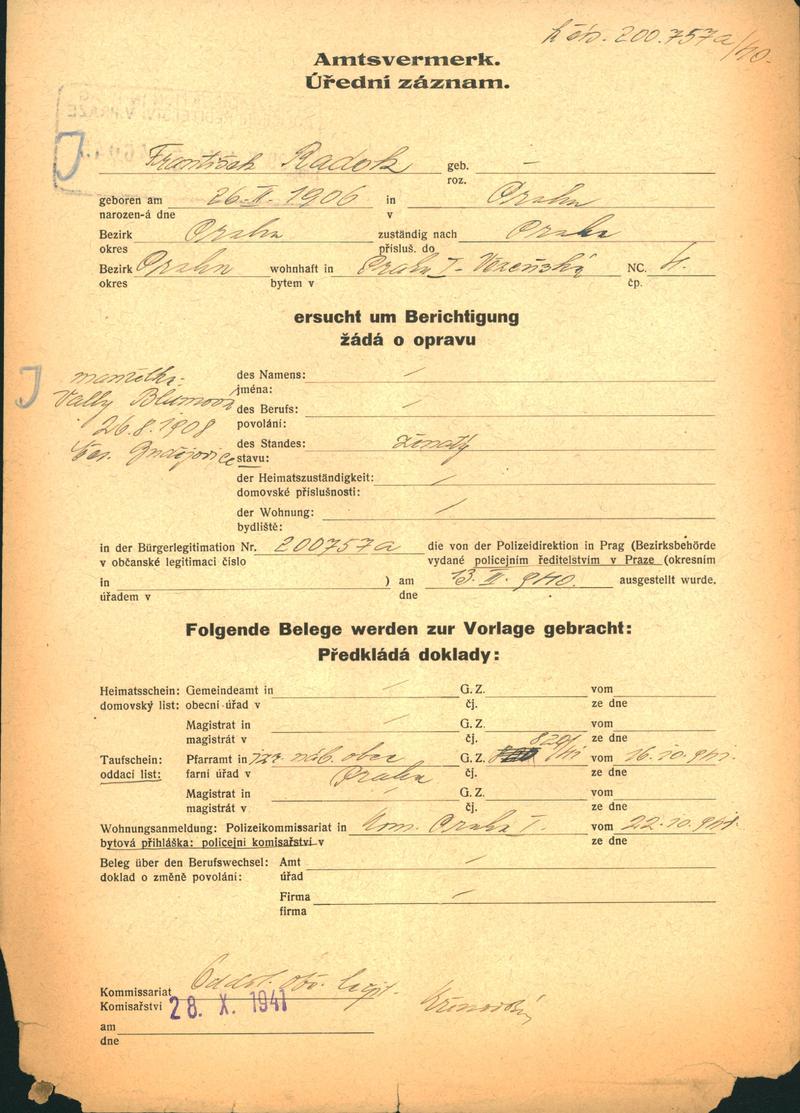 k čís. 200.757a/40.
Amtsvermerk.
Úřední záznam.
J
František Radok geb. —
roz.
geboren am 26.II.1906 in Praha
narozen-á dne v
Bezirk Praha zuständig nach Praha
okres přísluš. do
Bezirk Praha wohnhaft in Praha I- Vězeňská NC. 4.
okres bytem v čp.
ersucht um Berichtigung
žádá o opravu
J
manželka:
Vally Blumová
26.8.1908
des Namens: /
jména:
des Berufs: /
povolání:
des Standes: ženatý
stavu:
der Heimatszuständigkeit: /
domovské příslušnosti:
der Wohnung: /
bydliště:
in der Bürgerlegitimation Nr. 200757a die von der Polizeidirektion in Prag (Bezirksbehörde
v občanské legitimaci číslo vydané policejním ředitelstvím v Praze (okresním
in ) am 13. II. 940. ausgestellt wurde.
úřadem v dne
Folgende Belege werden zur Vorlage gebracht:
Předkládá doklady:
Heimatsschein: Gemeindeamt in / G. Z. vom
domovský list: obecní úřad v čj. ze dne
Magistrat in / G. Z. vom
magistrát v čj. ze dne
Taufschein: Pfarramt in žid. náb. obec G. Z. 820/41 vom 16.10.941.
oddací list: farní úřad v Praha čj. ze dne
Magistrat in / G. Z. vom
magistrát v čj. ze dne
Wohnungsanmeldung: Polizeikommissariat in Kom. Praha I. vom 22.10.941.
bytová přihláška: policejní komisařství v ze dne
Beleg über den Berufswechsel: Amt /
doklad o změně povolání: úřad
Firma /
firma
Kommissariat Odděl. obč. legit.
Komisařství 28. X. 1941
am
dne